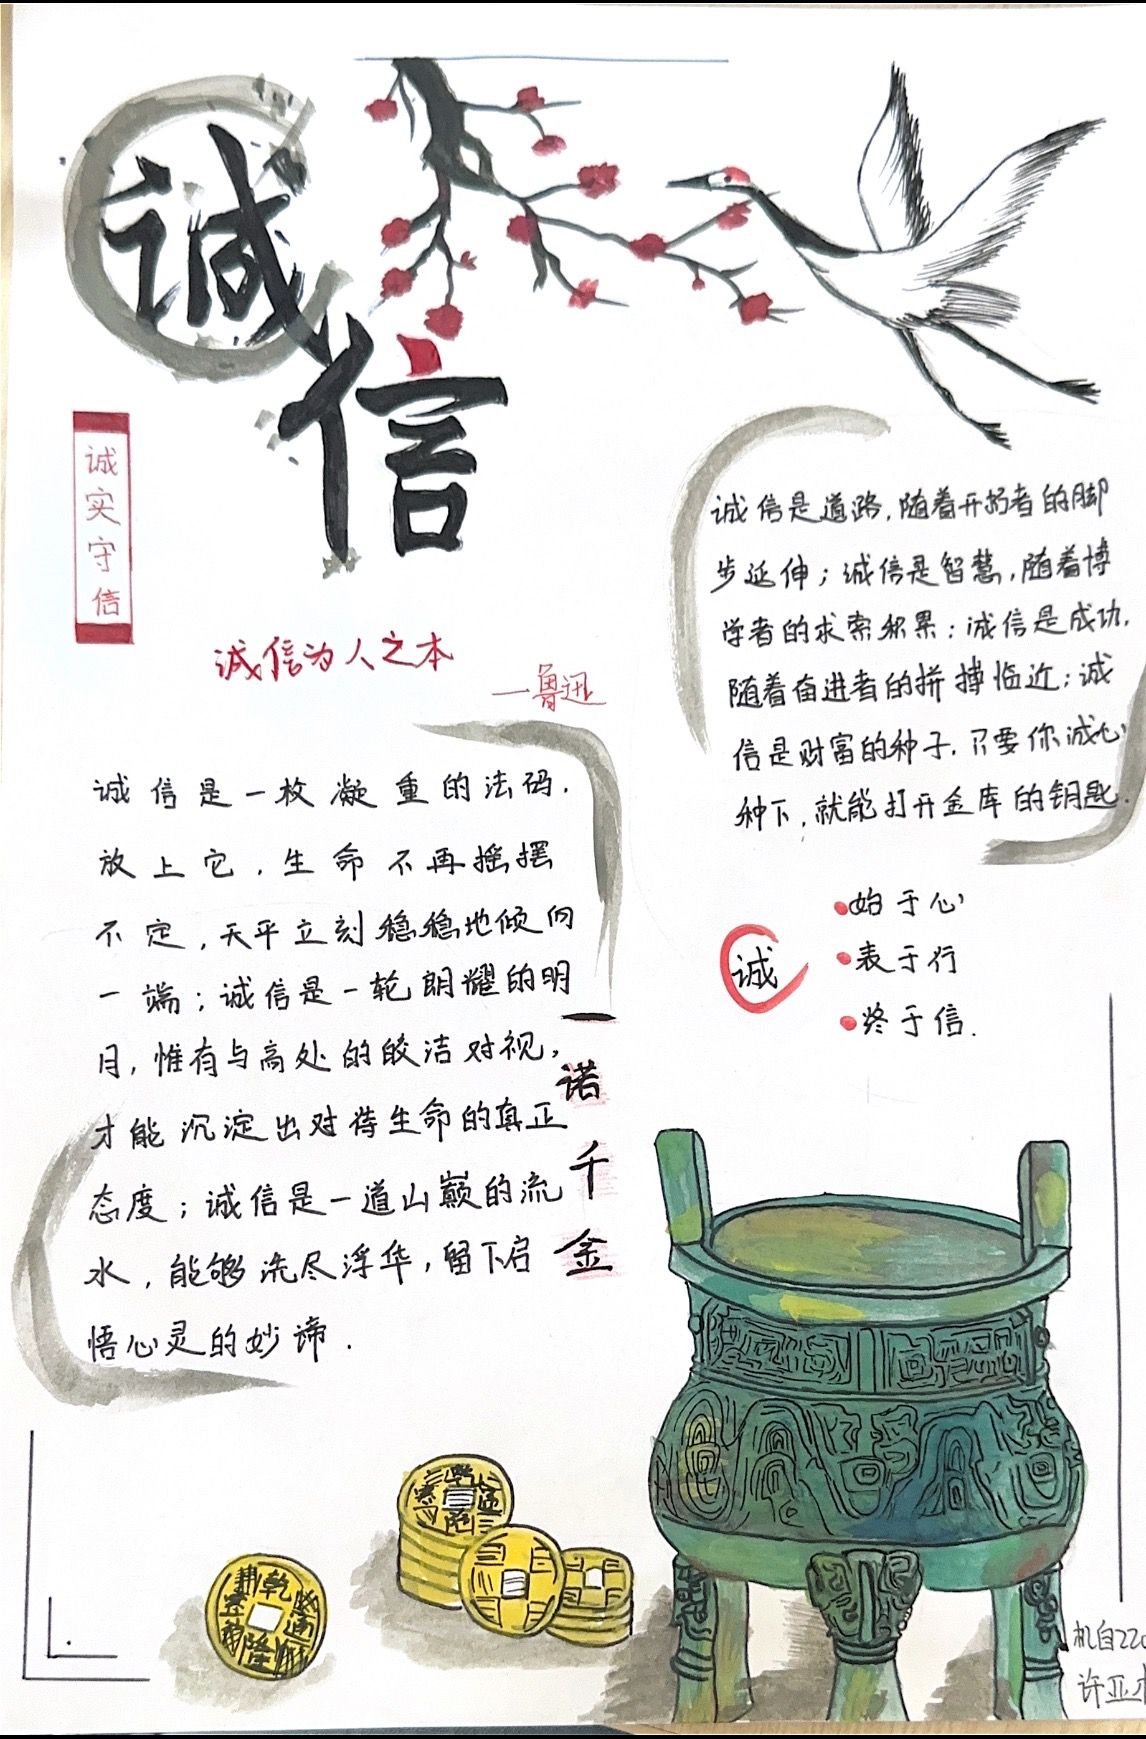 诚信
诚实守信
诚信为人之本
—鲁迅
诚信是道路,随着开拓者的脚
步延伸;诚信是智慧,随着博
学者的求索积累;诚信是成功,
随着奋进者的拼搏临近;诚
信是财富的种子,只要你诚心
种下,就能打开金库的钥匙.
诚信是一枚凝重的法码,
放上它,生命不再摇摆
不定,天平立刻稳稳地倾向
一端;诚信是一轮朗耀的明
月,惟有与高处的皎洁对视,
才能沉淀出对待生命的真正
态度;诚信是一道山巅的流
水,能够洗尽浮华,留下启
悟心灵的妙谛.
一诺千金
诚
始于心
表于行
终于信.
乾隆
机自220
许亚